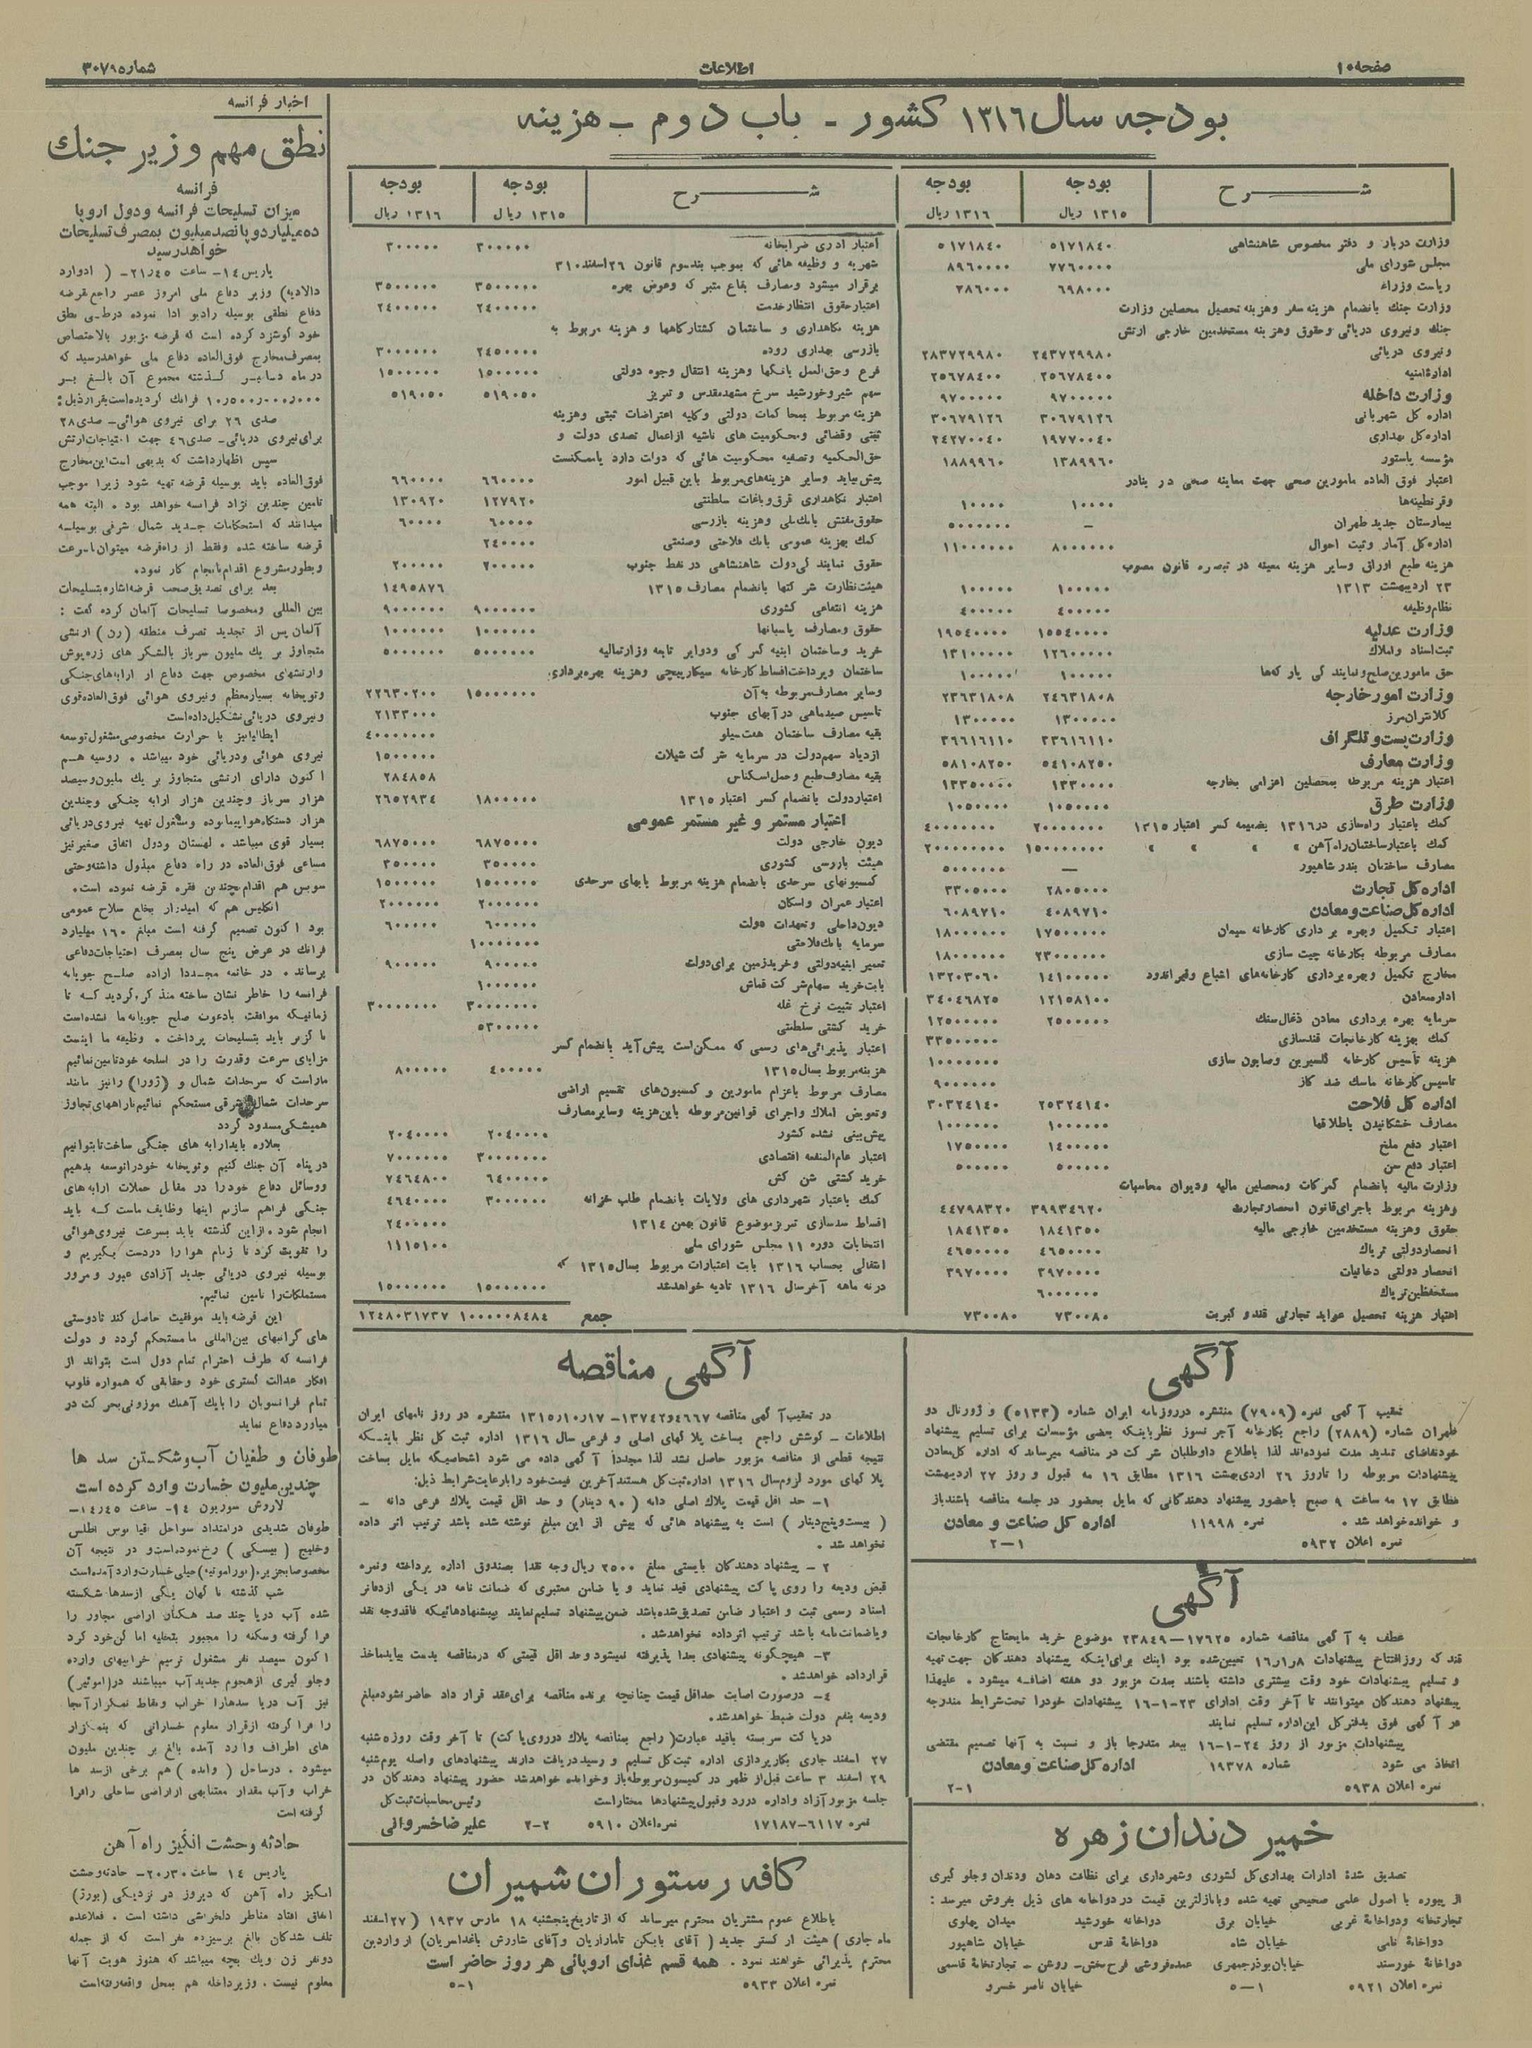 صفحه ۱۰
اطلاعات
شماره ۳۰۷۹۵
بودجه سال ۱۳۱۶ کشور - باب دوم - هزینه
شرح
بودجه ۱۳۱۵ ریال
بودجه ۱۳۱۶ ریال
وزارت دربار و دفتر مخصوص شاهنشاهی ۵۱۷۱۸۴۰ ۵۱۷۱۸۴۰
مجلس شورای ملی ۷۷۶۰۰۰۰ ۸۹۶۰۰۰۰
ریاست وزراء ۶۹۸۰۰۰
وزارت جنگ بانضمام هزینه سفر وهزینه تحصیل محصلین وزارت
جنگ ونیروی دریائی وحقوق وهزینه مستخدمین خارجی ارتش
ونیروی دریائی ۲۴۳۷۲۹۹۸۰ ۲۸۳۷۲۹۹۸۰
اداره امنیه ۲۵۶۷۸۴۰۰ ۲۵۶۷۸۴۰۰
وزارت داخله ۹۷۰۰۰۰۰ ۹۷۰۰۰۰۰
اداره کل شهربانی ۳۰۶۷۹۱۲۶ ۳۰۶۷۹۱۲۶
اداره کل بهداری ۱۹۷۷۰۰۴۰ ۲۴۲۷۰۰۴۰
مؤسسه پاستور ۱۳۸۹۹۶۰ ۱۸۸۹۹۶۰
اعتبار فوق العاده مامورین صحی جهت معاینه صحی در بنادر
وقرنطینه‌ها ۱۰۰۰۰ ۱۰۰۰۰
بیمارستان جدید طهران – ۵۰۰۰۰۰۰
اداره کل آمار وثبت احوال ۸۰۰۰۰۰۰ ۱۱۰۰۰۰۰۰
هزینه طبع اوراق وسایر هزینه معینه در تبصره قانون مصوب
۲۳ اردیبهشت ۱۳۱۳ ۱۰۰۰۰۰ ۱۰۰۰۰۰
نظام وظیفه ۴۰۰۰۰۰ ۴۰۰۰۰۰
وزارت عدلیه ۱۵۵۴۰۰۰۰ ۱۹۵۴۰۰۰۰
ثبت اسناد واملاک ۱۲۶۰۰۰۰۰ ۱۳۱۰۰۰۰۰
حق مامورین صلح ونمایندگی پارکه‌ها ۱۰۰۰۰۰ ۱۰۰۰۰۰
وزارت امورخارجه ۲۴۶۳۱۸۰۸ ۲۳۶۳۱۸۰۸
کلانتران مرز ۱۳۰۰۰۰۰ ۱۳۰۰۰۰۰
وزارت پست و تلگراف ۳۳۶۱۶۱۱۰ ۳۶۶۱۶۱۱۰
وزارت معارف ۵۴۱۰۸۲۵۰ ۵۸۱۰۸۲۵۰
اعتبار هزینه مربوطه بمحصلین اعزامی بخارجه ۱۳۳۰۰۰۰۰ ۱۳۳۵۰۰۰۰
وزارت طرق ۱۰۵۰۰۰۰ ۱۰۵۰۰۰۰
کمک باعتبار راه‌سازی در ۱۳۱۶ بضمیمه کسر اعتبار ۱۳۱۵ ۲۰۰۰۰۰۰۰ ۴۰۰۰۰۰۰۰
کمک باعتبارساختمان راه آهن » » » ۱۵۰۰۰۰۰۰۰ ۲۰۰۰۰۰۰۰۰
مصارف ساختمان بندر شاهپور — ۵۰۰۰۰۰۰
اداره کل تجارت ۲۸۰۵۰۰۰ ۳۳۰۵۰۰۰
اداره کل صناعت و معادن ۴۰۸۹۷۱۰ ۶۰۸۹۷۱۰
اعتبار تکمیل وبهره برداری کارخانه سیمان ۱۷۵۰۰۰۰۰ ۱۸۰۰۰۰۰۰
مصارف مربوطه بکارخانه چیت سازی ۲۳۰۰۰۰۰۰ ۱۸۰۰۰۰۰۰
مخارج تکمیل وبهره برداری کارخانه‌های اشباع وقیراندود ۱۴۱۰۰۰۰۰ ۱۳۲۰۳۰۶۰
اداره معادن ۱۲۱۵۸۱۰۰ ۳۴۰۴۶۸۲۵
سرمایه بهره برداری معادن ذغال‌سنگ ۲۵۰۰۰۰۰ ۱۲۵۰۰۰۰۰
کمک بهزینه کارخانجات قندسازی ۳۳۵۰۰۰۰۰
هزینه تأسیس کارخانه گلیسرین وصابون سازی ۱۰۰۰۰۰۰۰
تاسیس کارخانه ماسک ضد گاز ۹۰۰۰۰۰۰
اداره کل فلاحت ۲۵۳۲۴۱۴۰ ۳۰۳۲۴۱۴۰
مصارف خشکانیدن باطلاقها ۱۰۰۰۰۰۰ ۱۰۰۰۰۰۰
اعتبار دفع ملخ ۱۴۰۰۰۰۰ ۱۷۵۰۰۰۰
اعتبار دفع سن ۵۰۰۰۰۰ ۵۰۰۰۰۰
وزارت مالیه بانضمام گمرکات ومحصلین مالیه ودیوان محاسبات
وهزینه مربوط باجرای قانون انحصارتجارت ۳۹۹۳۴۶۲۰ ۴۴۷۹۸۳۲۰
حقوق وهزینه مستخدمین خارجی مالیه ۱۸۴۱۳۵۰ ۱۸۴۱۳۵۰
انحصاردولتی تریاک ۴۶۵۰۰۰۰ ۴۶۵۰۰۰۰
انحصار دولتی دخانیات ۳۹۷۰۰۰۰ ۳۹۷۰۰۰۰
مستحفظین تریاک ۶۰۰۰۰۰۰
اعتبار هزینه تحصیل عواید تجارتی قند و کبریت ۷۳۰۰۸۰ ۷۳۰۰۸۰
شرح
بودجه ۱۳۱۵ ریال
بودجه ۱۳۱۶ ریال
اعتبار اداری ضرابخانه ۳۰۰۰۰۰ ۳۰۰۰۰۰
شهریه و وظیفه هائی که بموجب بند سوم قانون ۲۶ اسفند ۳۱۰
برقرار میشود ومصارف بقاع متبرکه وعوض بهره ۳۵۰۰۰۰۰ ۳۵۰۰۰۰۰
اعتبارحقوق انتظار خدمت ۲۴۰۰۰۰۰ ۲۴۰۰۰۰۰
هزینه نگاهداری و ساختمان کشتارگاهها و هزینه مربوط به
بازرسی بهداری روده ۲۴۵۰۰۰۰ ۳۰۰۰۰۰۰
فرع وحق‌العمل بانکها وهزینه انتقال وجوه دولتی ۱۵۰۰۰۰۰ ۱۵۰۰۰۰۰
سهم شیروخورشید سرخ مشهد مقدس و تبریز ۵۱۹۰۵۰ ۵۱۹۰۵۰
هزینه مربوط بمحاکمات دولتی وکلیه اعتراضات ثبتی وهزینه
ثبتی وقضائی ومحکومیت های ناشیه ازاعمال تصدی دولت و
حق‌الحکمیه وتصفیه محکومیت هائی که دولت دارد یاممکنست
پیش بیاید وسایر هزینه‌های مربوط باین قبیل امور ۶۶۰۰۰۰ ۶۶۰۰۰۰
اعتبار نگاهداری قرق وباغات سلطنتی ۱۲۷۹۲۰ ۱۳۰۹۲۰
حقوق مفتش بانک ملی وهزینه بازرسی ۶۰۰۰۰ ۶۰۰۰۰
کمک بهزینه عمومی بانک فلاحتی وصنعتی ۲۴۰۰۰۰
حقوق نمایندگی دولت شاهنشاهی در نفط جنوب ۲۰۰۰۰۰ ۲۰۰۰۰۰
هیئت نظارت شرکتها بانضمام مصارف ۱۳۱۵ ۱۴۹۵۸۷۶
هزینه انتفاعی کشوری ۹۰۰۰۰۰۰ ۹۰۰۰۰۰۰
حقوق ومصارف پاسبانها ۱۰۰۰۰۰۰ ۱۰۰۰۰۰۰
خرید وساختمان ابنیه گمرکی ودوایر تابعه وزارتمالیه ۵۰۰۰۰۰۰ ۵۰۰۰۰۰۰
ساختمان وپرداخت اقساط کارخانه سیگارپیچی وهزینه بهره‌برداری
وسایر مصارف مربوطه به‌آن ۱۵۰۰۰۰۰۰ ۲۲۶۳۰۲۰۰
تاسیس صیدماهی در آبهای جنوب ۲۱۳۳۰۰۰
بقیه مصارف ساختمان هفت سیلو ۴۰۰۰۰۰۰۰
ازدیاد سهم دولت در سرمایه شرکت شیلات ۱۵۰۰۰۰۰
بقیه مصارف طبع وحمل اسکناس ۲۸۴۸۵۸
اعتباردولت بانضمام کسر اعتبار ۱۳۱۵ ۱۸۰۰۰۰۰ ۲۶۵۲۹۳۴
اعتبار مستمر و غیر مستمر عمومی
دیون خارجی دولت ۶۸۷۵۰۰۰ ۶۸۷۵۰۰۰
هیئت بازرسی کشوری ۳۵۰۰۰۰ ۳۵۰۰۰۰
کمسیونهای سرحدی بانضمام هزینه مربوط بابهای سرحدی ۱۵۰۰۰۰۰ ۱۵۰۰۰۰۰
اعتبار عمران واسکان ۲۰۰۰۰۰۰ ۲۰۰۰۰۰۰
دیون‌داخلی وتعهدات دولت ۶۰۰۰۰۰ ۶۰۰۰۰۰
سرمایه بانک فلاحتی ۱۰۰۰۰۰۰۰
تعمیر ابنیه‌دولتی وخریدزمین برای‌دولت ۹۰۰۰۰۰ ۹۰۰۰۰۰
بابت خرید سهام شرکت قماش ۱۰۰۰۰۰۰
اعتبار تثبیت نرخ غله ۳۰۰۰۰۰۰۰ ۳۰۰۰۰۰۰۰
خرید کشتی سلطنتی ۵۳۰۰۰۰۰
اعتبار پذیرائی‌های رسمی که ممکن‌است پیش‌آید بانضمام کسر
هزینه مربوط بسال ۱۳۱۵ ۴۰۰۰۰۰ ۸۰۰۰۰۰
مصارف مربوط باعزام مامورین و کمسیون‌های تقسیم اراضی
وتعویض املاک واجرای قوانین مربوطه باین هزینه وسایر مصارف
پیش‌بینی نشده کشور ۲۰۴۰۰۰۰ ۲۰۴۰۰۰۰
اعتبار عام‌المنفعه اقتصادی ۳۰۰۰۰۰۰۰ ۷۰۰۰۰۰۰
خرید کشتی شن کش ۶۴۰۰۰۰۰ ۷۴۶۴۸۰۰
کمک باعتبار شهرداری های ولایات بانضمام طلب خزانه ۳۰۰۰۰۰۰ ۴۶۴۰۰۰۰
اقساط سدسازی تبریز موضوع قانون بهمن ۱۳۱۴ ۲۴۰۰۰۰۰
انتخابات دوره ۱۱ مجلس شورای ملی ۱۱۱۵۱۰۰
انتقالی بحساب ۱۳۱۶ بابت اعتبارات مربوط بسال ۱۳۱۵ که
در نه ماهه آخرسال ۱۳۱۶ تادیه خواهدشد ۱۵۰۰۰۰۰۰ ۱۵۰۰۰۰۰۰
جمع ۱۰۰۰۰۰۸۴۸۴ ۱۲۴۸۰۳۱۷۳۷
اخبار فرانسه
نطق مهم وزیر جنگ
فرانسه
میزان تسلیحات فرانسه ودول اروپا
ده میلیارد و پانصد میلیون بمصرف تسلیحات
خواهد رسید
پاریس ۱۴- ساعت ۲۱٫۴۵- ( ادوارد
دالادیه) وزیر دفاع ملی امروز عصر راجع بقرضه
دفاع نطقی بوسیله رادیو ادا نموده درطی نطق
خود گوشزد کرده است که قرضه مزبور بالاختصاص
بمصرف مخارج فوق‌العاده دفاع ملی خواهد رسید که
در ماه دسامبر گذشته مجموع آن بالغ بر
۱۰٫۵۰۰٫۰۰۰٫۰۰۰ فرانک گردیده است بقرار ذیل:
صدی ۲۶ برای نیروی هوائی - صدی ۲۸
برای نیروی دریائی- صدی ۴۶ جهت احتیاجات ارتش
سپس اظهارداشت که بدیهی است این مخارج
فوق‌العاده باید بوسیله قرضه تهیه شود زیرا موجب
تامین چندین نژاد فرانسه خواهد بود . البته همه
میدانند که استحکامات جدید شمال شرقی بوسیله
قرضه ساخته شده وفقط از راه قرضه میتوان باسرعت
وبطور مشروع اقدام بانجام کار نمود.
بعد برای تصدیق صحت قرضه اشاره بتسلیحات
بین المللی ومخصوصا تسلیحات آلمان کرده گفت :
آلمان پس از تجدید تصرف منطقه (رن) ارتشی
متجاوز بر یک ملیون سرباز بالشکر های زره‌پوش
وارتشهای مخصوص جهت دفاع از ارابه‌های جنگی
وتوپخانه بسیار معظم ونیروی هوائی فوق‌العاده قوی
ونیروی دریائی تشکیل داده است
ایطالیا نیز با حرارت مخصوصی مشغول توسعه
نیروی هوائی ودریائی خود میباشد . روسیه هم
اکنون دارای ارتشی متجاوز بر یک ملیون وسیصد
هزار سرباز وچندین هزار ارابه جنگی وچندین
هزار دستگاه هواپیما بوده ومشغول تهیه نیروی دریائی
بسیار قوی میباشد . لهستان ودول اتفاق صغیر نیز
مساعی فوق‌العاده در راه دفاع مبذول داشته وحتی
سویس هم اقدام بچندین فقره قرضه نموده است.
انگلیس هم که امیدوار بخلع سلاح عمومی
بود اکنون تصمیم گرفته است مبلغ ۱۶۰ میلیارد
فرانک در عرض پنج سال بمصرف احتیاجات دفاعی
برساند . در خاتمه مجددا اراده صلح جویانه
فرانسه را خاطر نشان ساخته متذکر گردید که تا
زمانیکه موافقت بادعوت صلح جویانه ما نشده است
ناگزیر باید بتسلیحات پرداخت . وظیفه ما اینست
مزایای سرعت وقدرت را در اسلحه خود تامین نمائیم
ماراست که سرحدات شمال و (ژورا) رانیز مانند
سرحدات شمال شرقی مستحکم نمائیم تا راههای تجاوز
همیشگی مسدود گردد
بعلاوه باید ارابه های جنگی ساخت تا بتوانیم
در پناه آن جنگ کنیم وتوپخانه خود را توسعه بدهیم
ووسائل دفاع خود را در مقابل حملات ارابه‌های
جنگی فراهم سازیم اینها وظایف ماست که باید
انجام شود . از این گذشته باید بسرعت نیروی هوائی
را تقویت کرد تا زمام هوا را دردست بگیریم و
بوسیله نیروی دریائی جدید آزادی عبور و مرور
مستملکات را تامین نمائیم.
این قرضه باید موفقیت حاصل کند تا دوستی
های گرانبهای بین‌المللی ما مستحکم گردد و دولت
فرانسه که طرف احترام تمام دول است بتواند از
افکار عدالت گستری خود وحقایقی که همواره قلوب
تمام فرانسویان را بایک آهنگ موزونی بحرکت در
میاورد دفاع نماید
طوفان و طغیان آب و شکستن سد ها
چندین ملیون خسارت وارد کرده است
لاروش سوریون ۱۴- ساعت ۱۴٫۴۵-
طوفان شدیدی در امتداد سواحل اقیانوس اطلس
وخلیج ( بیسکی ) رخ نموده است و در نتیجه آن
مخصوصا بجزیره (نورا مونیه) خیلی خسارت وارد آمده است
شب گذشته ناگهان یکی از سدها شکسته
شده آب دریا چند صد هکتار اراضی مجاور را
فرا گرفته وسکنه را مجبور بتخلیه اماکن خود کرد
اکنون سیصد نفر مشغول ترمیم خرابیهای وارده
وجلوگیری از هجوم جدید آب میباشند در (اموتیر)
نیز آب دریا سدها را خراب ونقاط نمکزار آنجا
را فرا گرفته از قرار معلوم خساراتی که بنمکزار
های اطراف وارد آمده بالغ بر چندین ملیون
میشود . در ساحل ( وانده ) هم برخی از سد ها
خراب وآب مقدار معتنابهی از اراضی ساحلی را فرا
گرفته است
حادثه وحشت انگیز راه آهن
پاریس ۱۴ ساعت ۲۰٫۳۰- حادثه وحشت
انگیز راه آهن که دیروز در نزدیکی (بورژ)
اتفاق افتاد مناظر دلخراشی داشته است . فعلا عده
تلف شدگان بالغ برسیزده نفر است که از جمله
دو نفر زن ویک بچه میباشد که هنوز هویت آنها
معلوم نیست . وزیر داخله هم بمحل واقعه رفته است
آگهی
تعقیب آگهی نمره (۷۹۰۹) منتشره در روزنامه ایران شماره (۵۱۳۳) و ژورنال دو
طهران شماره (۲۸۸۹) راجع بکارخانه آجر نسوز نظر باینکه بعضی مؤسسات برای تسلیم پیشنهاد
خود تقاضای تمدید مدت نموده‌اند لذا باطلاع داوطلبان شرکت در مناقصه میرساند که اداره کل معادن
پیشنهادات مربوطه را تا روز ۲۶ اردی‌بهشت ۱۳۱۶ مطابق ۱۶ مه قبول و روز ۲۷ اردیبهشت
مطابق ۱۷ مه ساعت ۹ صبح باحضور پیشنهاد دهندگانی که مایل بحضور در جلسه مناقصه باشند باز
و خوانده خواهد شد . نمره ۱۱۹۹۸ اداره کل صناعت و معادن
نمره اعلان ۵۹۳۲ ۱-۲
آگهی
عطف به آگهی مناقصه شماره ۱۷۶۲۵—۲۳۸۴۹ موضوع خرید مایحتاج کارخانجات
قند که روز افتتاح پیشنهادات ۱۶٫۱٫۸ تعیین شده بود اینک برای اینکه پیشنهاد دهندگان جهت تهیه
و تسلیم پیشنهادات خود وقت بیشتری داشته باشند بمدت مزبور دو هفته اضافه میشود . علیهذا
پیشنهاد دهندگان میتوانند تا آخر وقت اداری ۲۳-۱-۱۶ پیشنهادات خود را تحت شرایط مندرجه
در آگهی فوق بدفتر کل این اداره تسلیم نمایند
پیشنهادات مزبور از روز ۲۴-۱-۱۶ ببعد متدرجا باز و نسبت به آنها تصمیم مقتضی
اتخاذ می شود شماره ۱۹۳۷۸ اداره کل صناعت و معادن
نمره اعلان ۵۹۳۸ ۱-۲
خمیر دندان زهره
تصدیق شدهٔ ادارات بهداری کل کشوری وشهرداری برای نظافت دهان ودندان وجلوگیری
از پیوره با اصول علمی صحیحی تهیه شده وبا نازلترین قیمت در دواخانه های ذیل بفروش میرسد :
تجارتخانه ودواخانهٔ غربی خیابان برق دواخانه خورشید میدان پهلوی
دواخانهٔ نامی خیابان شاه دواخانهٔ قدس خیابان شاهپور
دواخانهٔ خورسند خیابان بوذرجمهری عمده‌فروشی فرح‌بخش- روغن - تجارتخانهٔ قاسمی
نمره اعلان ۵۹۲۱ ۱—۵ خیابان ناصر خسرو
آگهی مناقصه
در تعقیب آگهی مناقصه ۱۳۷۴۲و۴۶۶۷-۱۳۱۵٫۱۰٫۱۷ منتشره در روز نامهای ایران
اطلاعات - کوشش راجع بساخت پلاکهای اصلی و فرعی سال ۱۳۱۶ اداره ثبت کل نظر باینکه
نتیجه قطعی از مناقصه مزبور حاصل نشد لذا مجدداً آگهی داده می شود اشخاصیکه مایل بساخت
پلاکهای مورد لزوم سال ۱۳۱۶ اداره ثبت کل هستند آخرین قیمت خود را با رعایت شرایط ذیل:
۱- حد اقل قیمت پلاک اصلی دانه (۹۰ دینار) و حد اقل قیمت پلاک فرعی دانه -
( بیست و پنج دینار ) است به پیشنهاد هائی که بیش از این مبلغ نوشته شده باشد ترتیب اثر داده
نخواهد شد .
۲ - پیشنهاد دهندگان بایستی مبلغ ۲۵۰۰ ریال وجه نقد بصندوق اداره پرداخته ونمره
قبض ودیعه را روی پاکت پیشنهادی قید نماید و یا ضامن معتبری که ضمانت نامه در یکی از دفاتر
اسناد رسمی ثبت و اعتبار ضامن تصدیق شده باشد ضمن پیشنهاد تسلیم نمایند پیشنهادهائیکه فاقد وجه نقد
ویا ضمانت‌نامه باشد ترتیب اثر داده نخواهد شد.
۳- هیچگونه پیشنهادی بعدا پذیرفته نمیشود وحد اقل قیمتی که در مناقصه بدست بیاید ماخذ
قرارداده خواهد شد .
۴- درصورت اصابت حداقل قیمت چنانچه برنده مناقصه برای عقد قرار داد حاضر نشود مبلغ
ودیعه بنفع دولت ضبط خواهد شد.
در پاکت سربسته باقید عبارت (راجع بمناقصه پلاک در روی پاکت) تا آخر وقت روز ۵ شنبه
۲۷ اسفند جاری بکارپردازی اداره ثبت کل تسلیم و رسید دریافت دارند پیشنهادهای واصله یوم شنبه
۲۹ اسفند ۳ ساعت قبل از ظهر در کمیسیون مربوطه باز وخوانده خواهد شد حضور پیشنهاد دهندگان در
جلسه مزبور آزاد واداره در رد وقبول پیشنهادها مختار است رئیس محاسبات ثبت کل
نمره ۶۱۱۷-۱۷۱۸۷ نمره اعلان ۵۹۱۰ ۲-۲ علیرضا خسروانی
کافه رستوران شمیران
باطلاع عموم مشتریان محترم میرساند که از تاریخ پنجشنبه ۱۸ مارس ۱۹۳۷ ( ۲۷ اسفند
ماه جاری ) هیئت ارکستر جدید از واردین
محترم پذیرائی خواهند نمود . همه قسم غذای اروپائی هر روز حاضر است
نمره اعلان ۵۹۳۳ ۱-۵